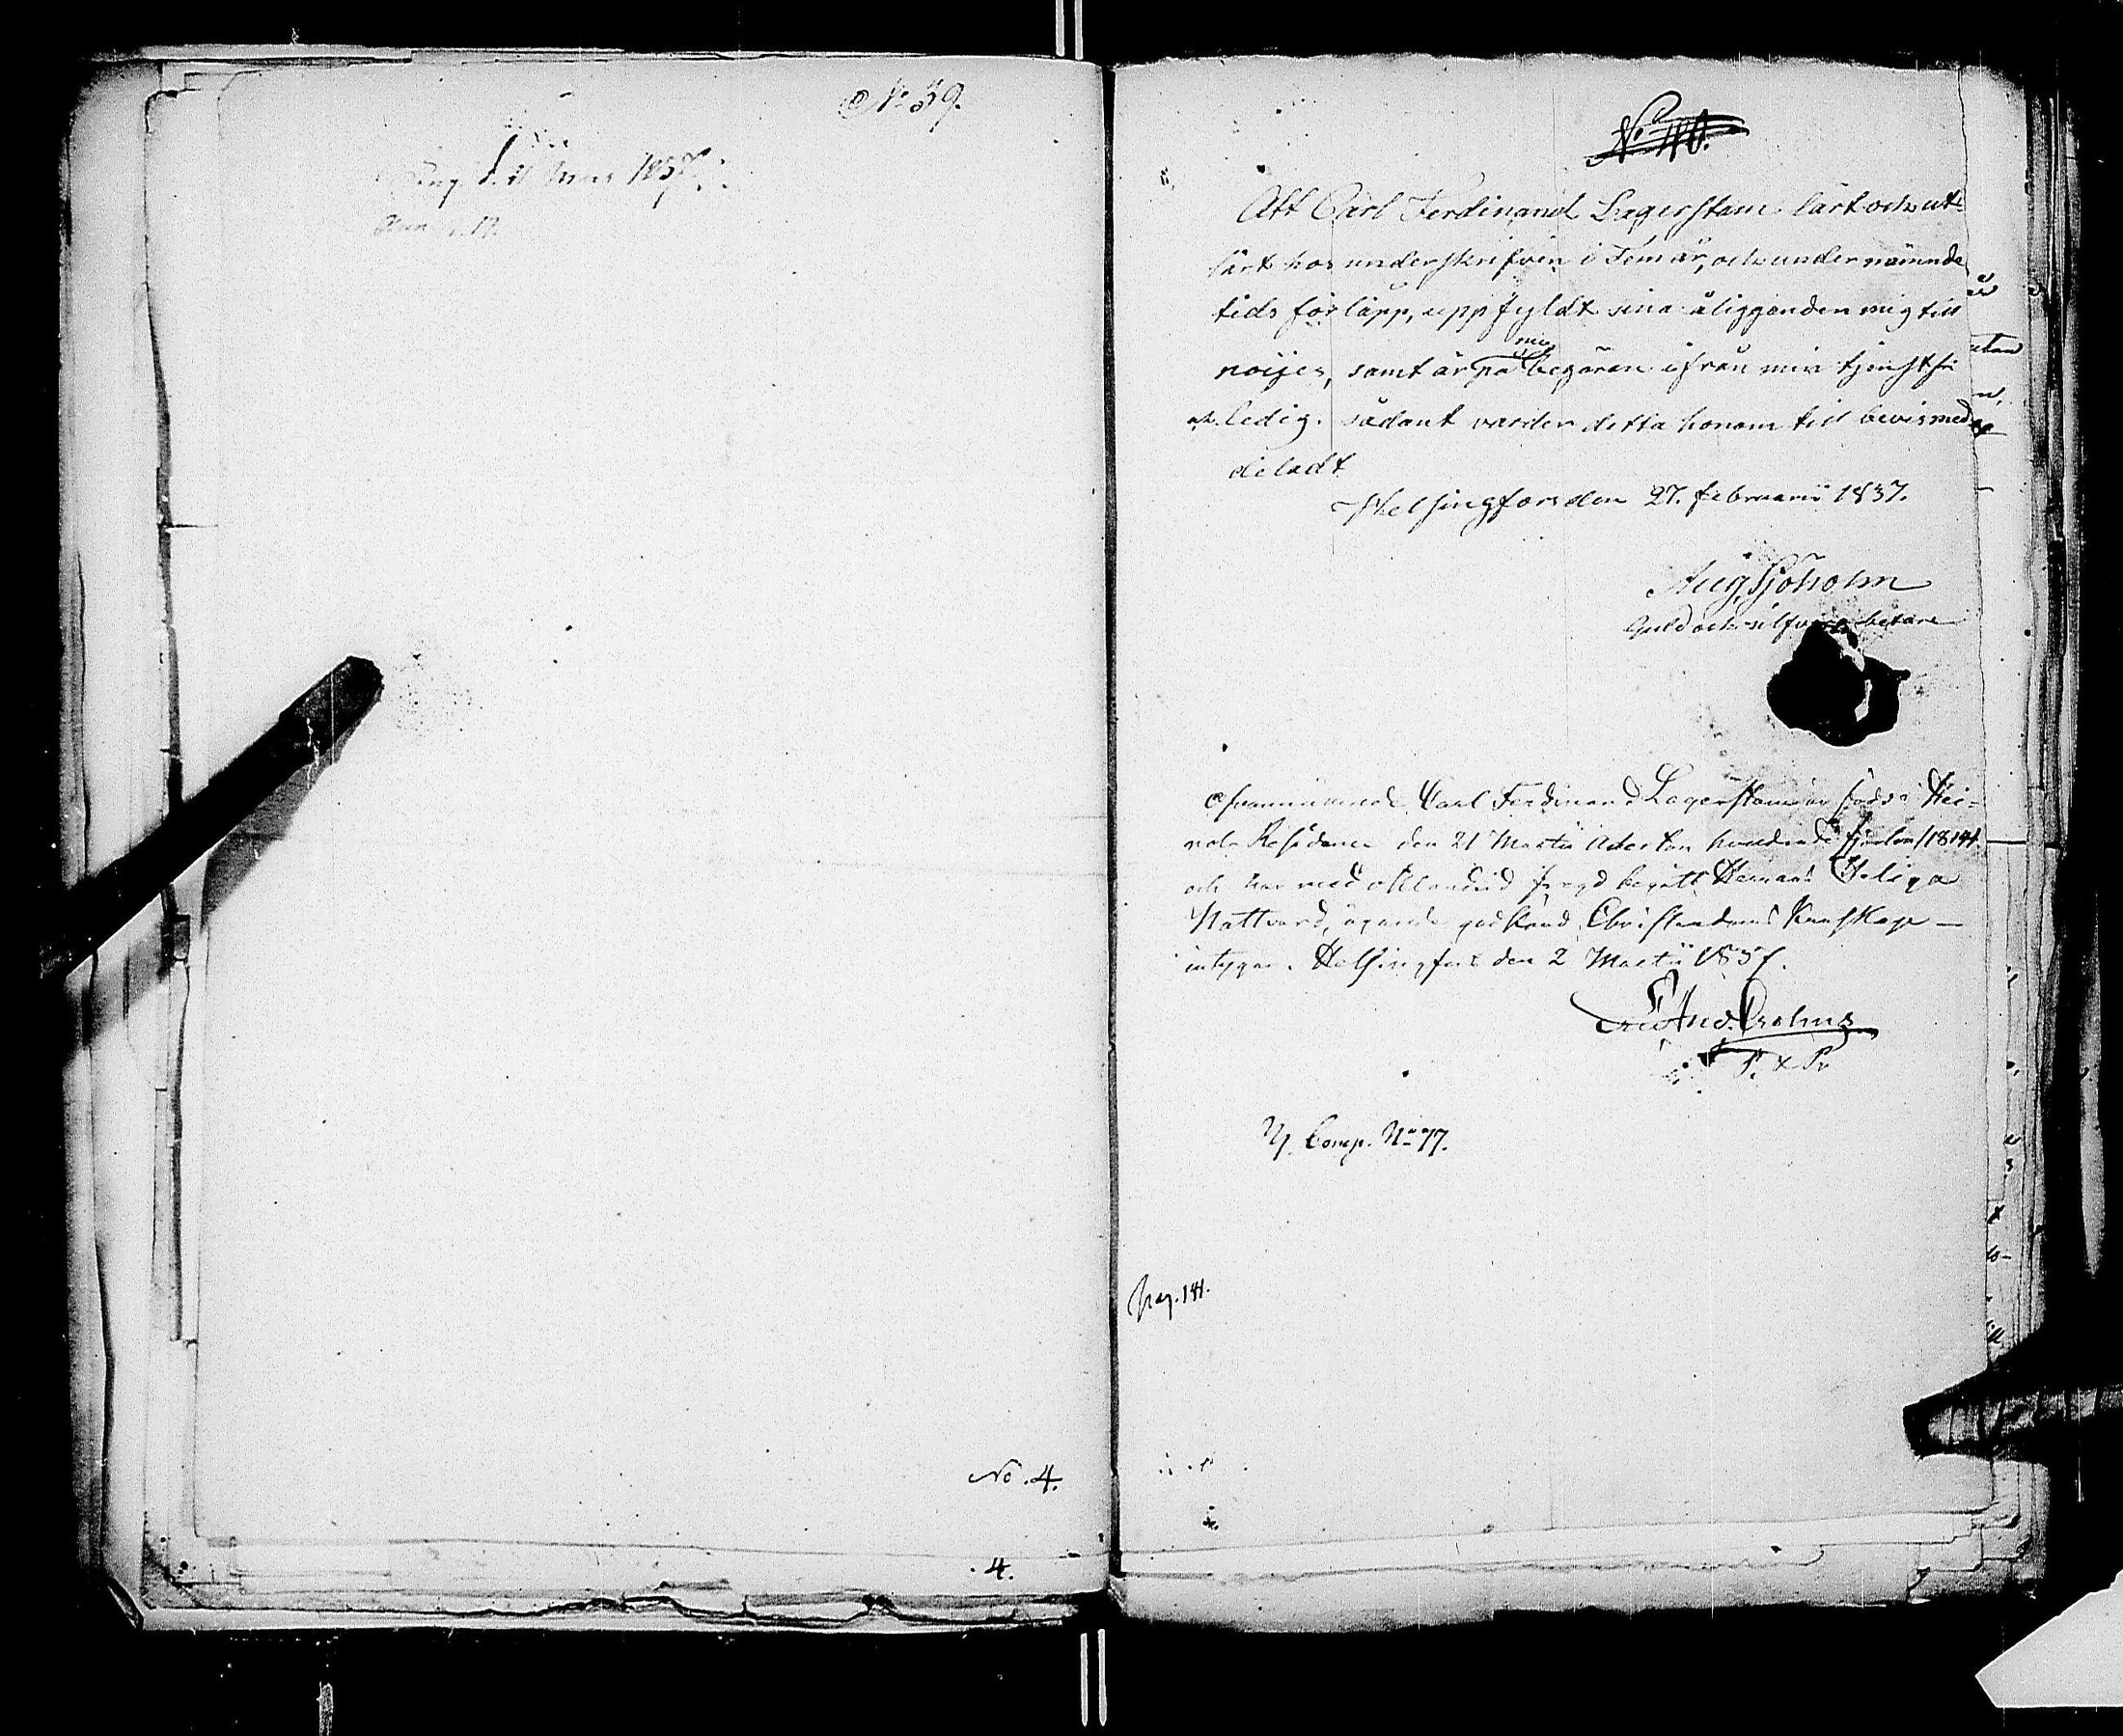 No 39.
d. 11 Mars 1837.
No. 4.
. 4.
No 40.
Att Carl Ferdinand Lagerstam lärt och ut-
lärt hos underskrifven i Fem år, och under nämnde
tids förlåpp, uppfyldt sina åligganden mig till
nöijes, samt är på begäran ifrån min tjenst fri
och ledig. sådant varder detta honom till bevis med-
deladt
Helsingfors den 27. februarii 1837.
Aug, Sjöholm
Guld och silfver arbetare
Ofvannämnde Carl Ferdinand Lagerstam är född i Hei-
nola Residence den 21 Martii Adertonhundrade fjorton /1814/
och har med frejd begått Herrans Heliga
Nattvard, ägande godkänd Christendoms Kunskap
intygar. Helsingfors den 2 Martii 1837.
And. Crohns
Comp. No 77.
Pag. 141.